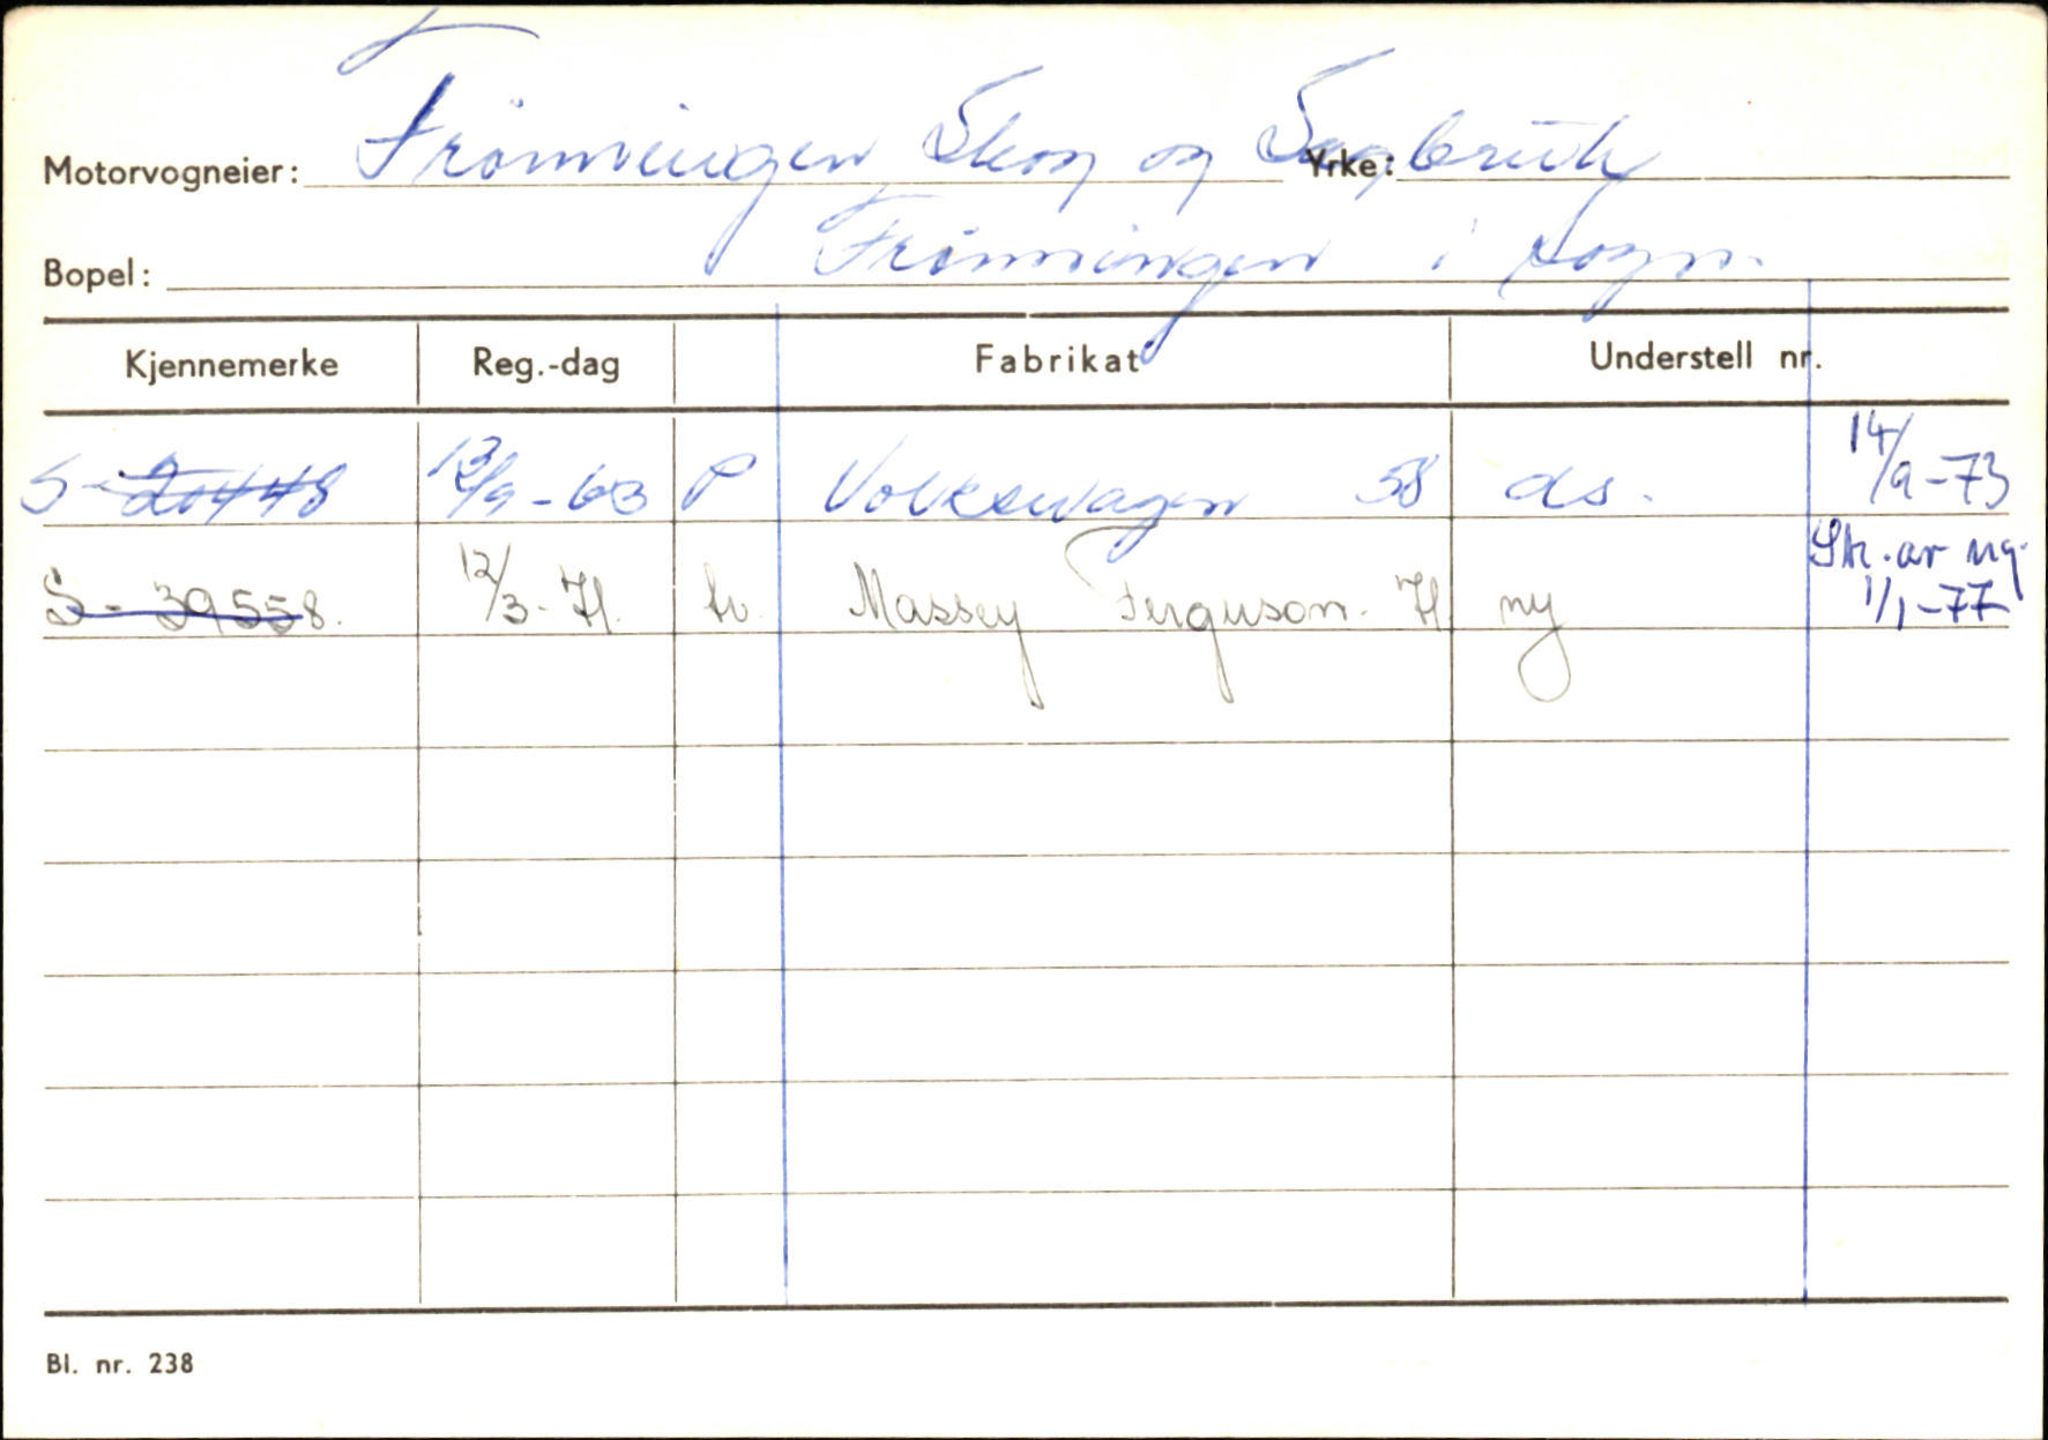 Motorvogneier: Frønningen Skog og Sagbruk Yrke:
Bopel: Frønningen i Sogn.
Kjennemerke Reg.-dag Fabrikat Understell nr.
S-20448 13/9-63 P Volkswagen 58 ds. 14/9-73
S-39558. 12/3-71. tr. Massey Ferguson. 71 ny Str. av reg. 1/1-77
Bl. nr. 238